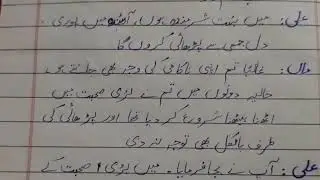 علی: میں بہت شرمندہ ہوں، آئندہ میں پوری
دل جمی سے پڑھائی کروں گا
ماں: غالباً تم اپنی ناکامی کی وجہ بھی جانتے ہوں
حالیہ دونوں میں تم نے بری صحبت میں
اٹھنا بیٹھنا شروع کر دیا تھا اور پڑھائی کی
طرف بالکل بھی توجہ نہ دی
علی: آپ نے بجا فرمایا۔ میں بری صحبت کے